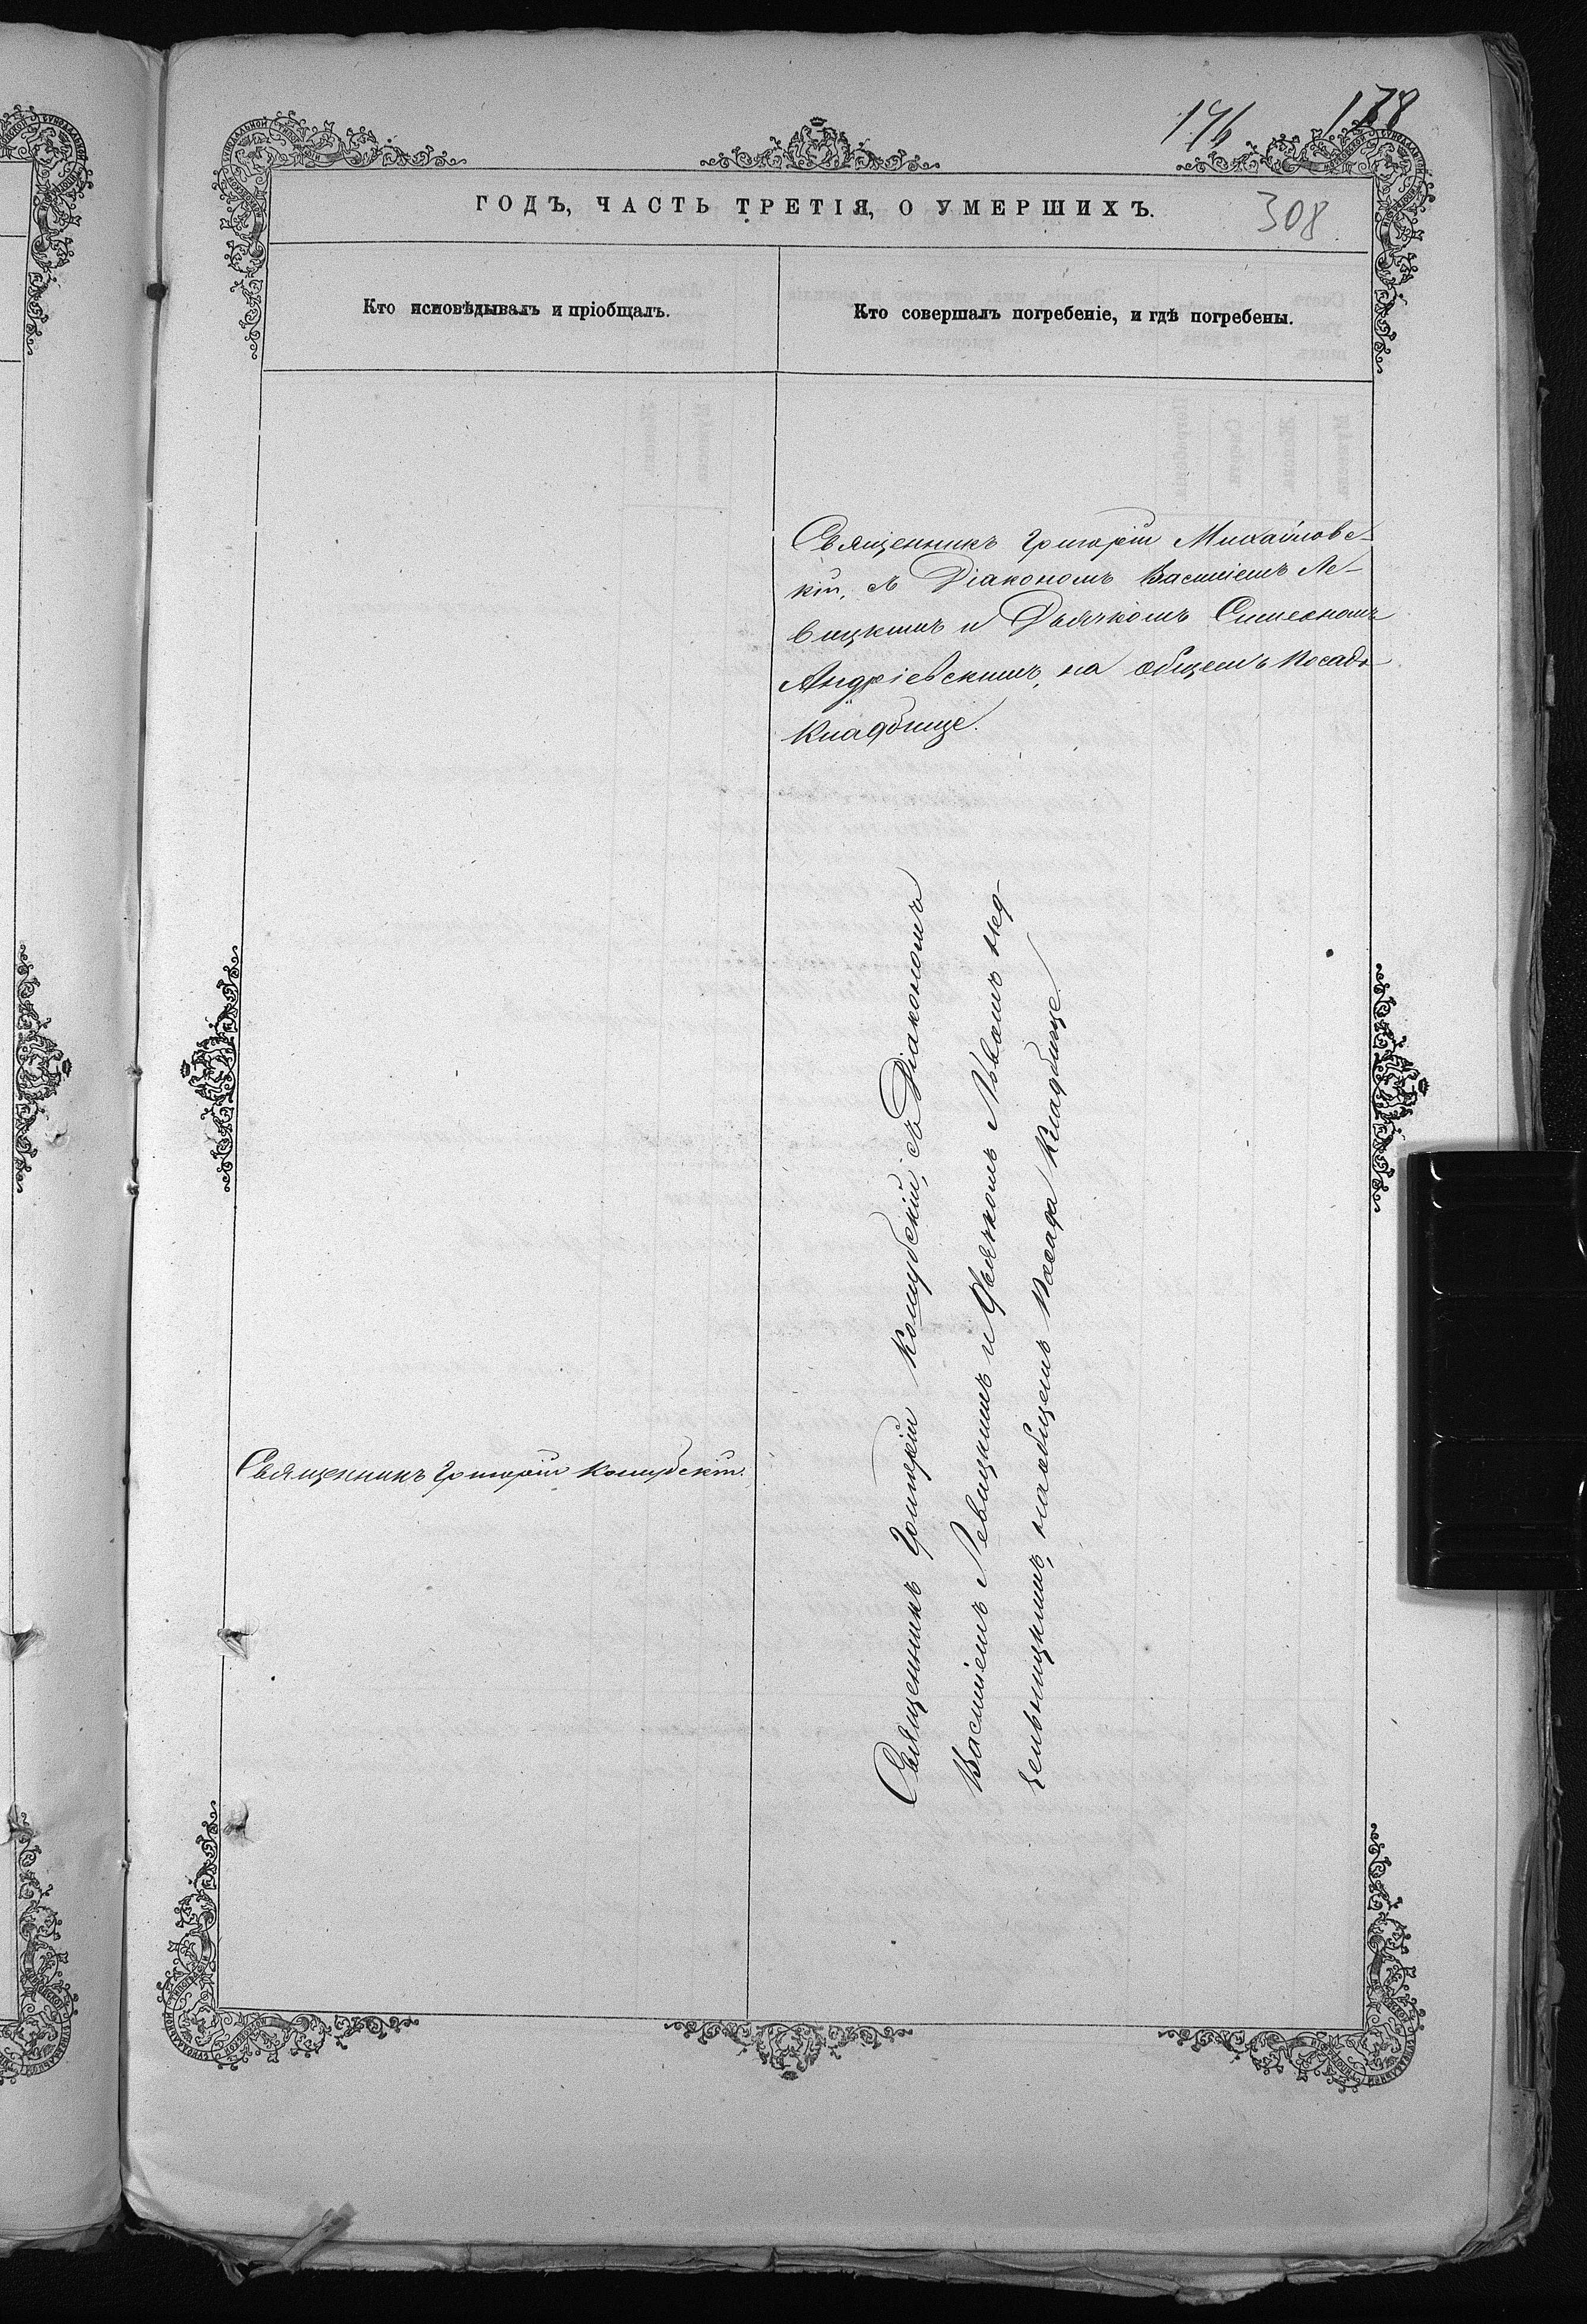 196 178
ГОДЪ, ЧАСТЬ ТРЕТІЯ, О УМЕРШИХЪ.
308
Кто исповѣдывалъ и пріобщалъ.
Кто совершалъ погребеніе, и гдѣ погребены.
Священникъ Григорій Михайловс-
кій, съ Діакономъ Василіемъ Ле-
вицкимъ и Дьячкомъ Симеономъ
Андріевскимъ, на общемъ посада
кладбище.
Священникъ Григорій Коцубскій.
Священникъ Григорій Коцубскій, съ Діакономъ
Василіемъ Левицкимъ и Дьячкомъ Львомъ Нед-
зельницкимъ, на общемъ посада кладбище